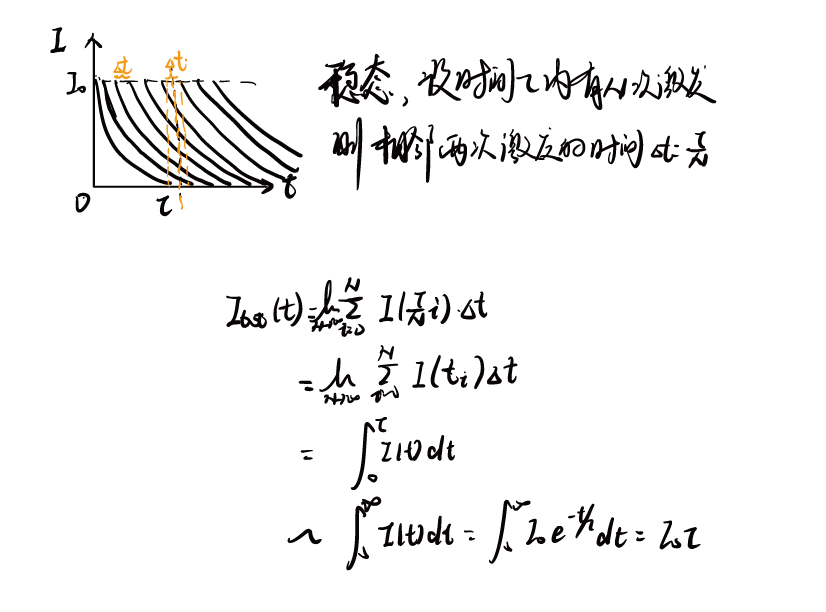 I
Δt
ti
I₀
0
τ
t
稳态，设时间τ内有N次激发
则相邻两次激发的时间Δt=τ/N
(t)=lim N→∞ Σ i=0 N I(τ/N i)·Δt
=lim N→∞ Σ i=0 N I(ti)Δt
= ∫₀^τ I(t)dt
~ ∫₀^∞ I(t)dt = ∫₀^∞ I₀e^(-t/τ)dt = I₀τ